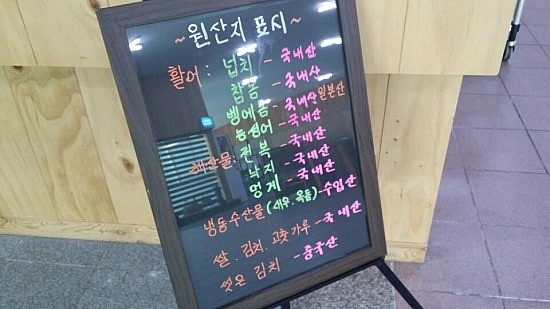 ~ 원산지 표시 ~
활어 : 넙치 - 국내산
참돔 - 국내산
뱅에돔 - 국내산 일본산
능성어 - 국내산
해산물 : 전복 - 국내산
낙지 - 국내산
멍게 - 국내산
냉동수산물 (새우.묵음) - 수입산
쌀 . 김치 . 고춧가루 - 국내산
씻은 김치 - 중국산